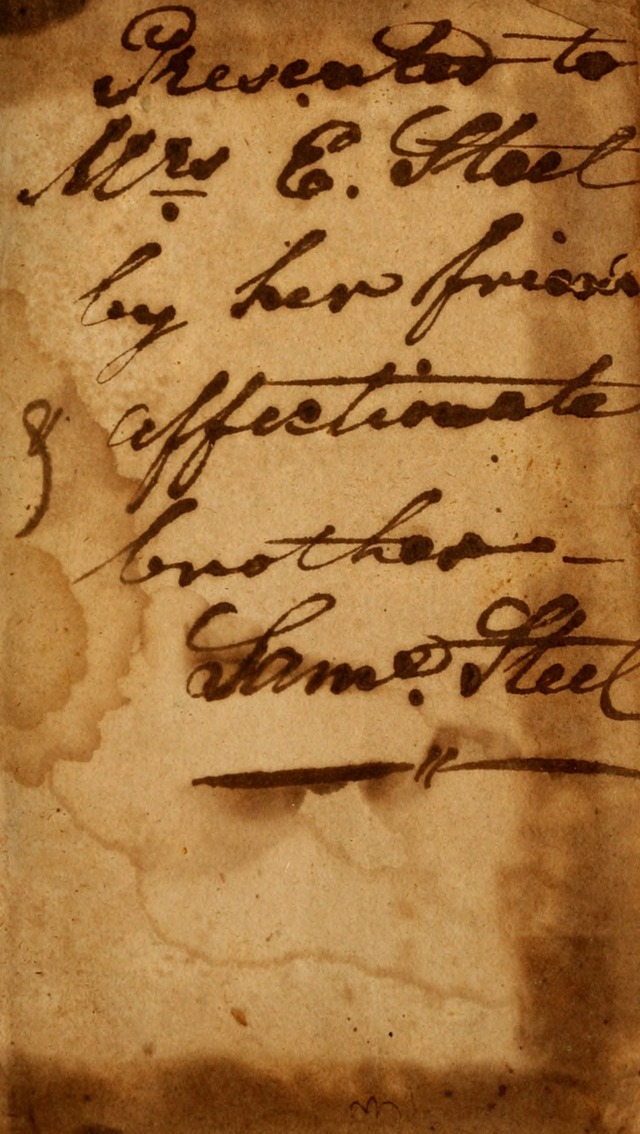 Presented to
Mrs E. Steel
by her friend
& affectionate
brother —
Saml. Steel